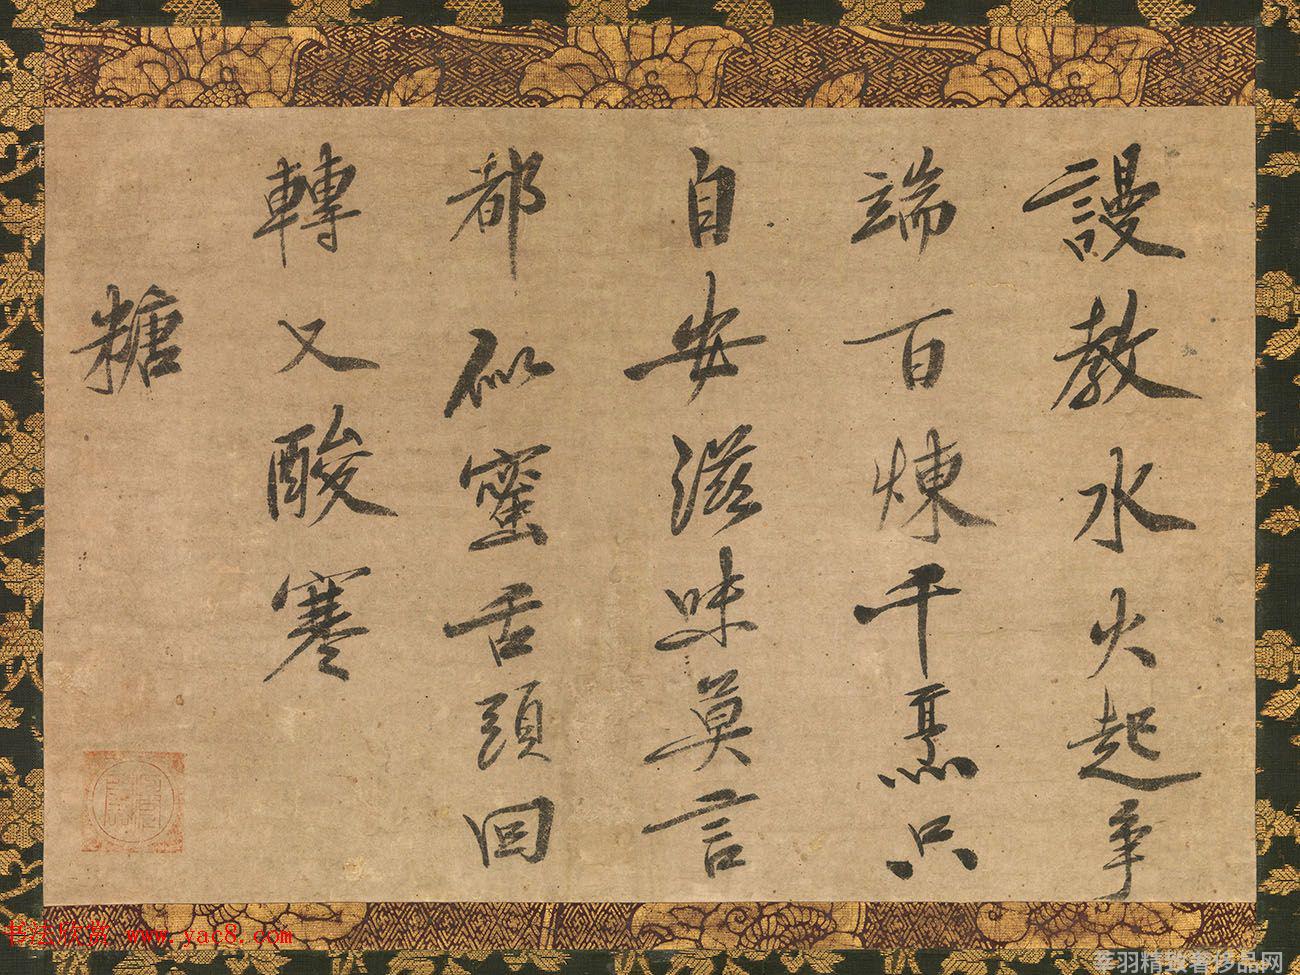 謾教水火起爭
端百煉千烹只
自安滋味莫言
都似蜜舌頭回
轉又酸寒
糖
书法欣赏 www.yac8.com